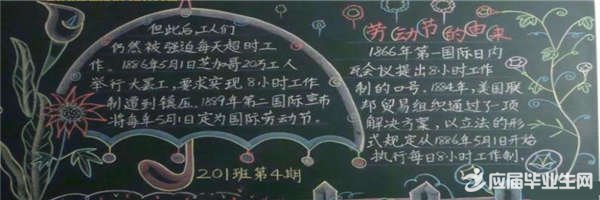 但此后工人们
仍然被强迫每天超时工
作。1886年5月1日芝加哥20万工人
举行大罢工，要求实现8小时工作
制遭到镇压。1889年第二国际宣布
将每年5月1日定为国际劳动节。
201班第4期
劳动节的由来
1866年第一国际日内
瓦会议提出8小时工作
制的口号。1884年，美国联
邦贸易组织通过了一项
解决方案，以立法的形
式规定从1886年5月1日开始
执行每日8小时工作制.
应届毕业生网